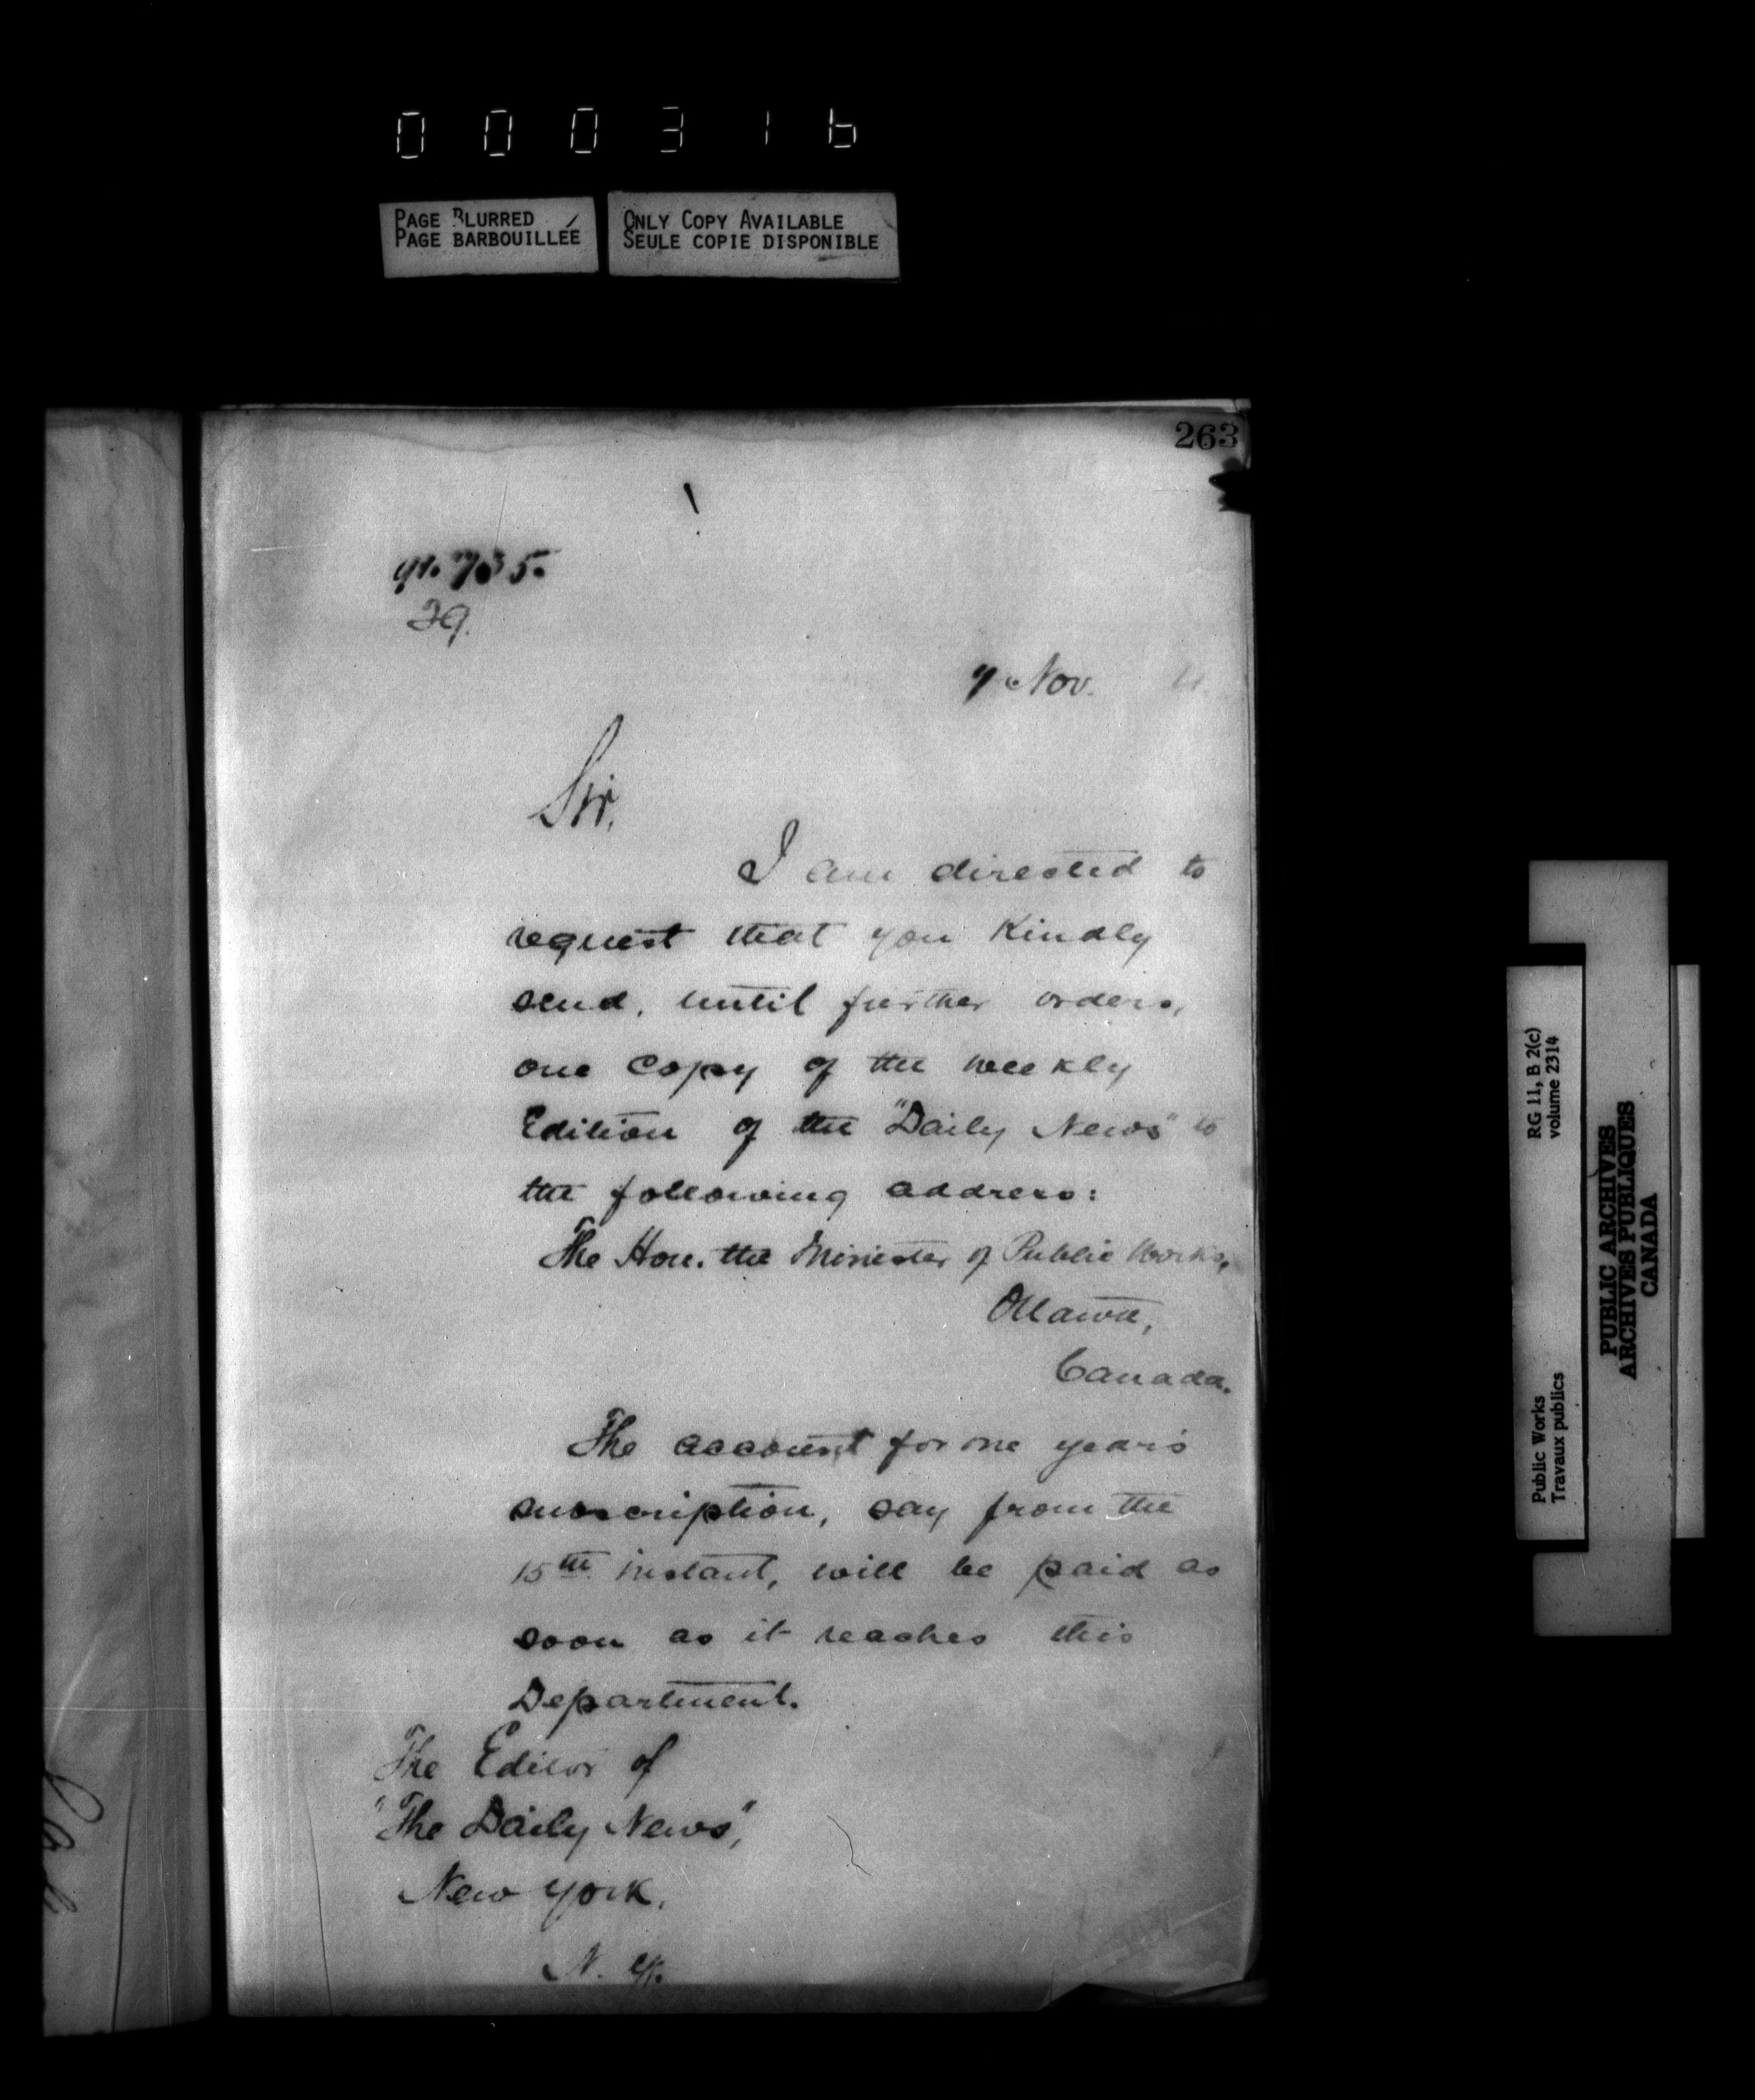 000316
PAGE BLURRED
PAGE BARBOUILLÉE
ONLY COPY AVAILABLE
SEULE COPIE DISPONIBLE
263
735.
29.
7 Nov.
Sir,
I am directed to
request that you Kindly
send, until further orders,
one copy of the weekly
Edition of the "Daily News" to
the following address:
The Hon. the Minister of Public Works,
Ottawa,
Canada.
The account for one year's
subscription, say from the
15th instant, will be paid as
soon as it reaches this
Department.
The Editor of
"The Daily News",
New York.
N. Y.
RG 11, B 2(c)
volume 2314
Public Works
Travaux publics
PUBLIC ARCHIVES
ARCHIVES PUBLIQUES
CANADA